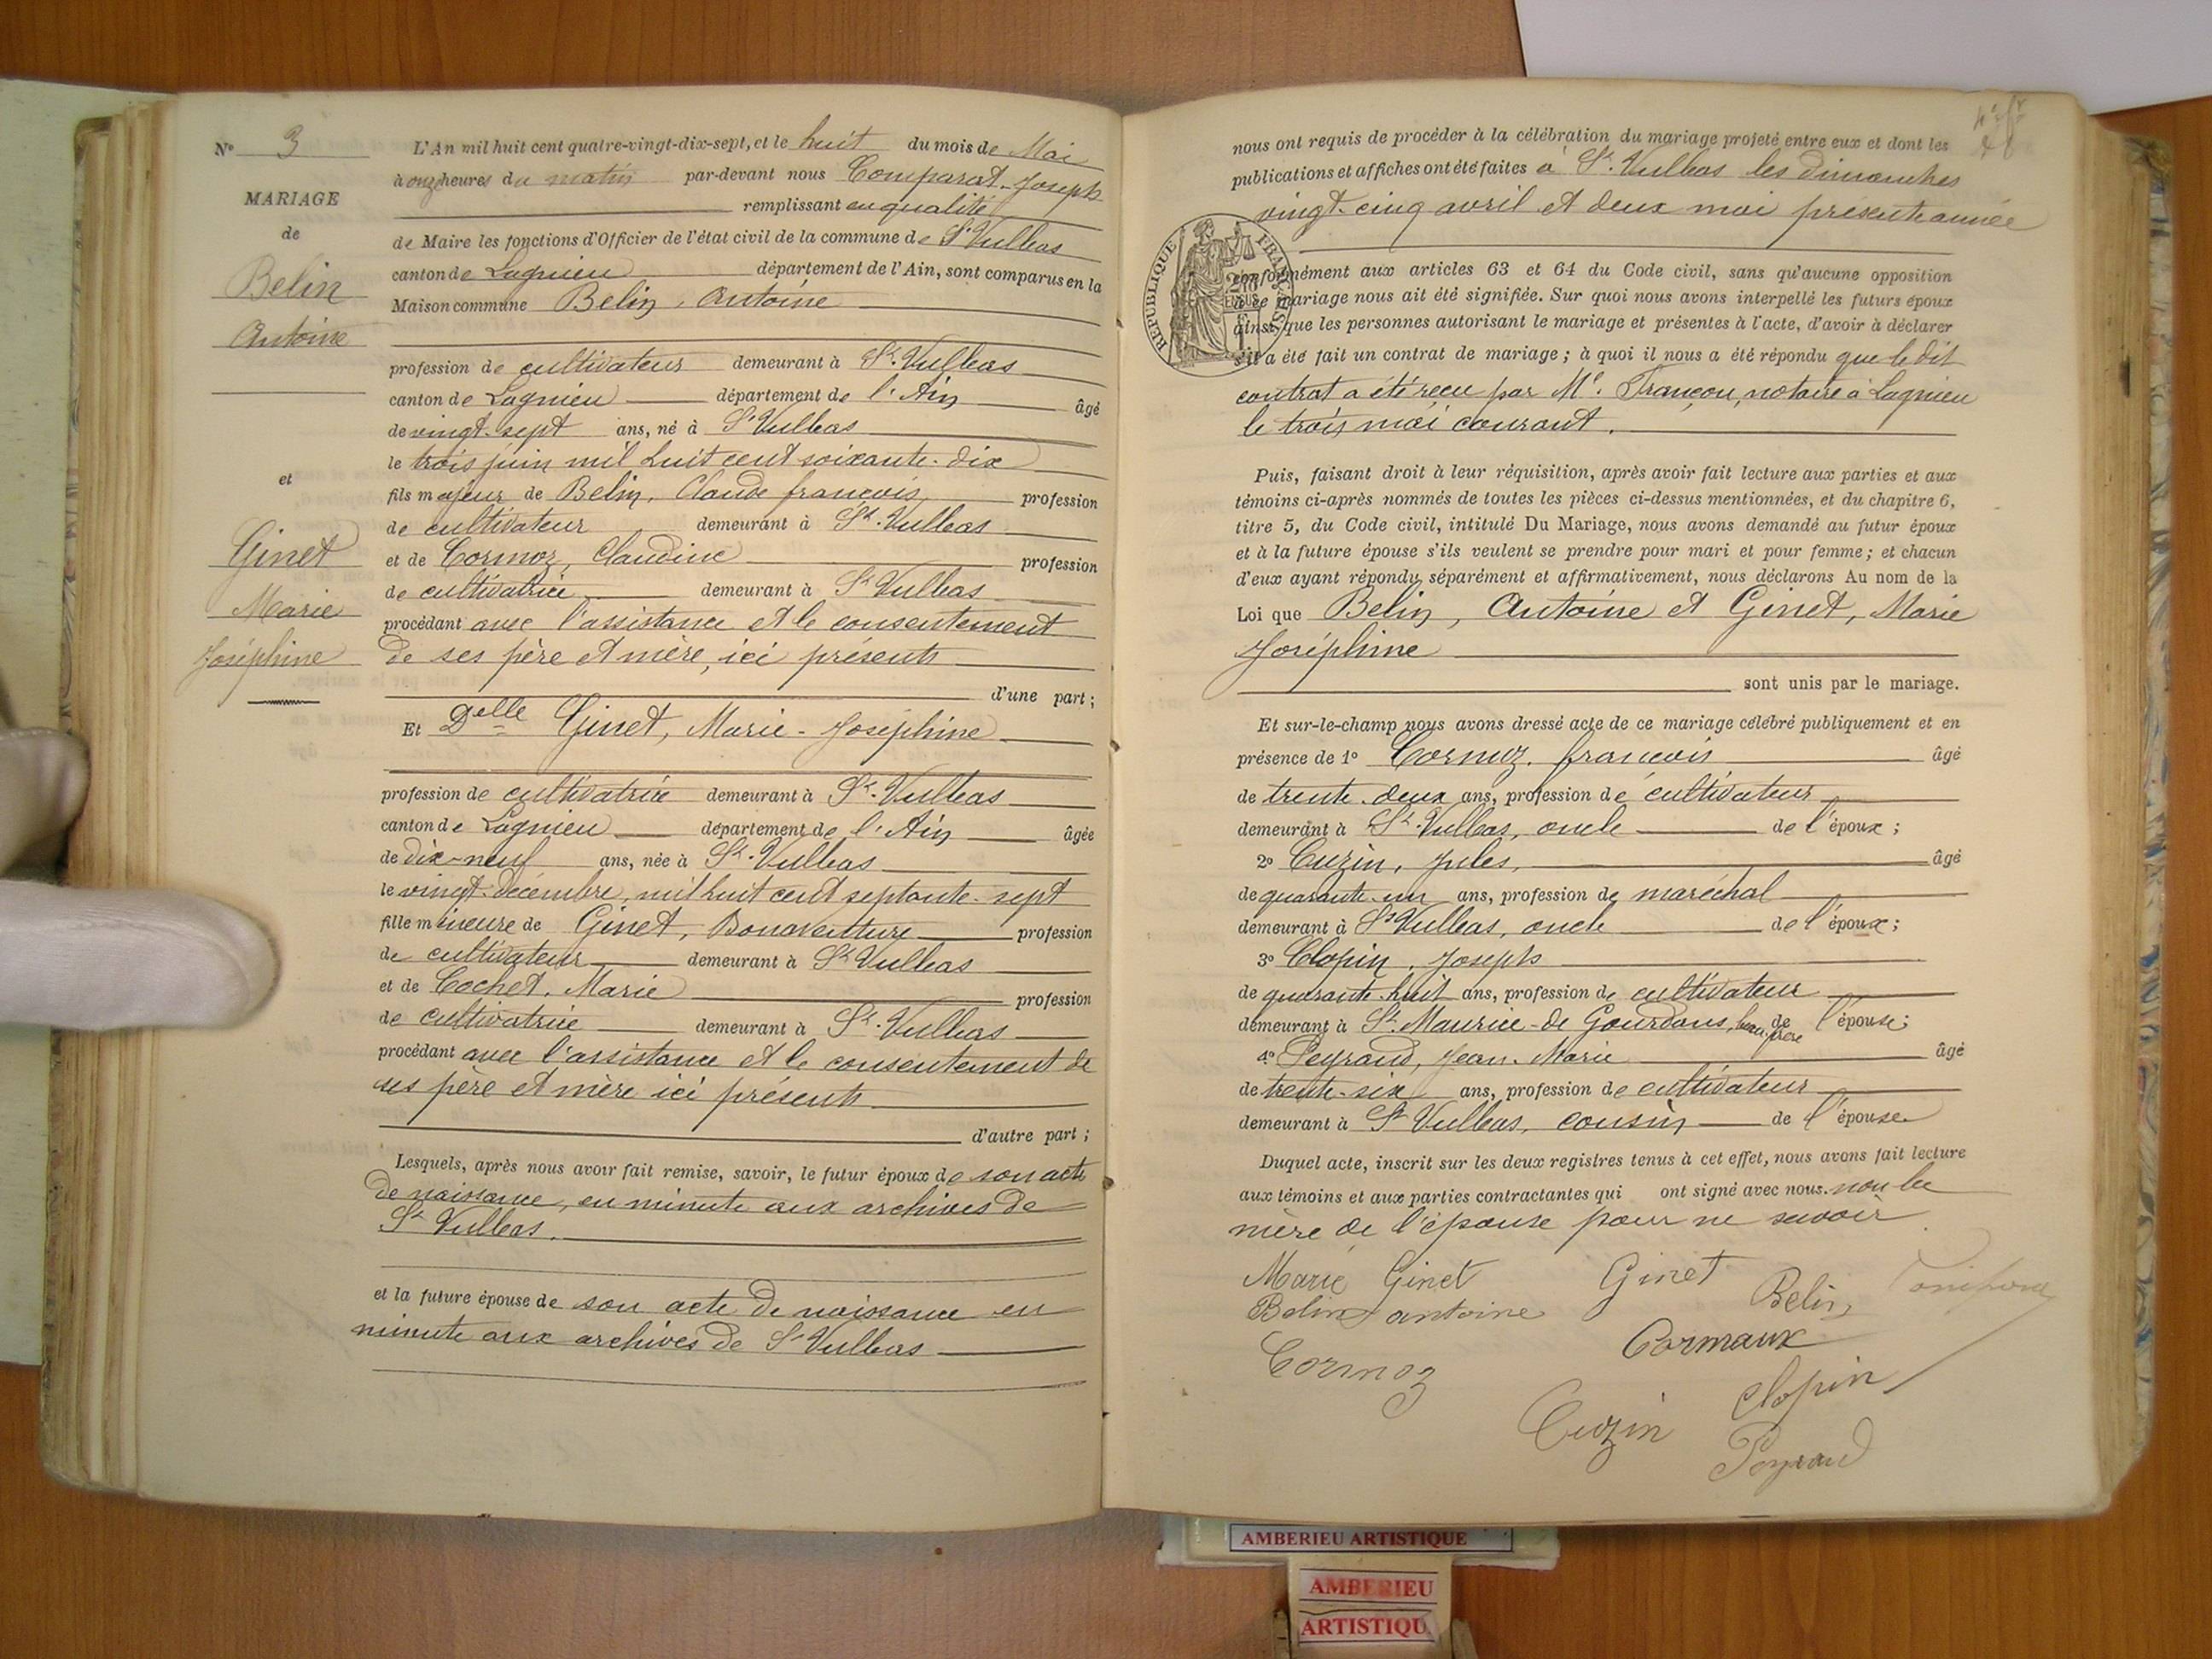 N° 3
MARIAGE
de
Belin
Antoine
et
Ginet
Marie
Joséphine
L'An mil huit cent quatre-vingt-dix-sept, et le huit du mois de Mai
à onze heures du matin par-devant nous Comparat Joseph
remplissant en qualité
de Maire les fonctions d'Officier de l'état civil de la commune de St Vulbas
canton de Lagnieu département de l'Ain, sont comparus en la
Maison commune Belin, Antoine
profession de cultivateur demeurant à St. Vulbas
canton de Lagnieu département de l'Ain âgé
de vingt-sept ans, né à St Vulbas
le trois juin mil huit cent soixante-dix
fils majeur de Belin, Claude françois, profession
de cultivateur demeurant à St. Vulbas
et de Cormoz, Claudine profession
de cultivatrice demeurant à St Vulbas
procédant avec l'assistance et le consentement
de ses père et mère, ici présents
d'une part;
Et Delle Ginet, Marie-Joséphine
profession de cultivatrice demeurant à St. Vulbas
canton de Lagnieu département de l'Ain âgée
de dix-neuf ans, née à St. Vulbas
le vingt-décembre, mil huit cent septante-sept
fille mineure de Ginet, Bonaventure profession
de cultivateur demeurant à St Vulbas
et de Cochet, Marie profession
de cultivatrice demeurant à St. Vulbas
procédant avec l'assistance et le consentement de
ses père et mère ici présents
d'autre part;
Lesquels, après nous avoir fait remise, savoir, le futur époux de son acte
de naissance, en minute aux archives de
St Vulbas.
et la future épouse de son acte de naissance en
minute aux archives de St Vulbas
nous ont requis de procéder à la célébration du mariage projeté entre eux et dont les
publications et affiches ont été faites à St. Vulbas les dimanches
vingt-cinq avril et deux mai présente année
RÉPUBLIQUE FRANÇAISE
conformément aux articles 63 et 64 du Code civil, sans qu'aucune opposition
à ce mariage nous ait été signifiée. Sur quoi nous avons interpellé les futurs époux
ainsi que les personnes autorisant le mariage et présentes à l'acte, d'avoir à déclarer
s'il a été fait un contrat de mariage; à quoi il nous a été répondu que le dit
contrat a été reçu par Me. Françou, notaire à Lagnieu
le trois mai courant.
Puis, faisant droit à leur réquisition, après avoir fait lecture aux parties et aux
témoins ci-après nommés de toutes les pièces ci-dessus mentionnées, et du chapitre 6,
titre 5, du Code civil, intitulé Du Mariage, nous avons demandé au futur époux
et à la future épouse s'ils veulent se prendre pour mari et pour femme; et chacun
d'eux ayant répondu séparément et affirmativement, nous déclarons Au nom de la
Loi que Belin, Antoine et Ginet, Marie
Joséphine
sont unis par le mariage.
Et sur-le-champ nous avons dressé acte de ce mariage célébré publiquement et en
présence de 1° Cormoz, françois âgé
de trente-deux ans, profession de cultivateur
demeurant à St. Vulbas, oncle de l'époux;
2° Cuzin, Jules, âgé
de quarante-un ans, profession de maréchal
demeurant à St Vulbas, oncle de l'époux;
3° Clopin, Joseph
de quarante-huit ans, profession de cultivateur
demeurant à St. Maurice-de Gourdans, beau-frère de l'épouse;
4° Peyraud, Jean-Marie âgé
de trente-six ans, profession de cultivateur
demeurant à St Vulbas, cousin de l'épouse
Duquel acte, inscrit sur les deux registres tenus à cet effet, nous avons fait lecture
aux témoins et aux parties contractantes qui ont signé avec nous. non la
mère de l'épouse pour ne savoir.
Marie Ginet Ginet Belin
Belin antoine
Cormaux
Cormoz
Clopin
Cuzin
Peyraud
AMBERIEU ARTISTIQUE
AMBERIEU
ARTISTIQU